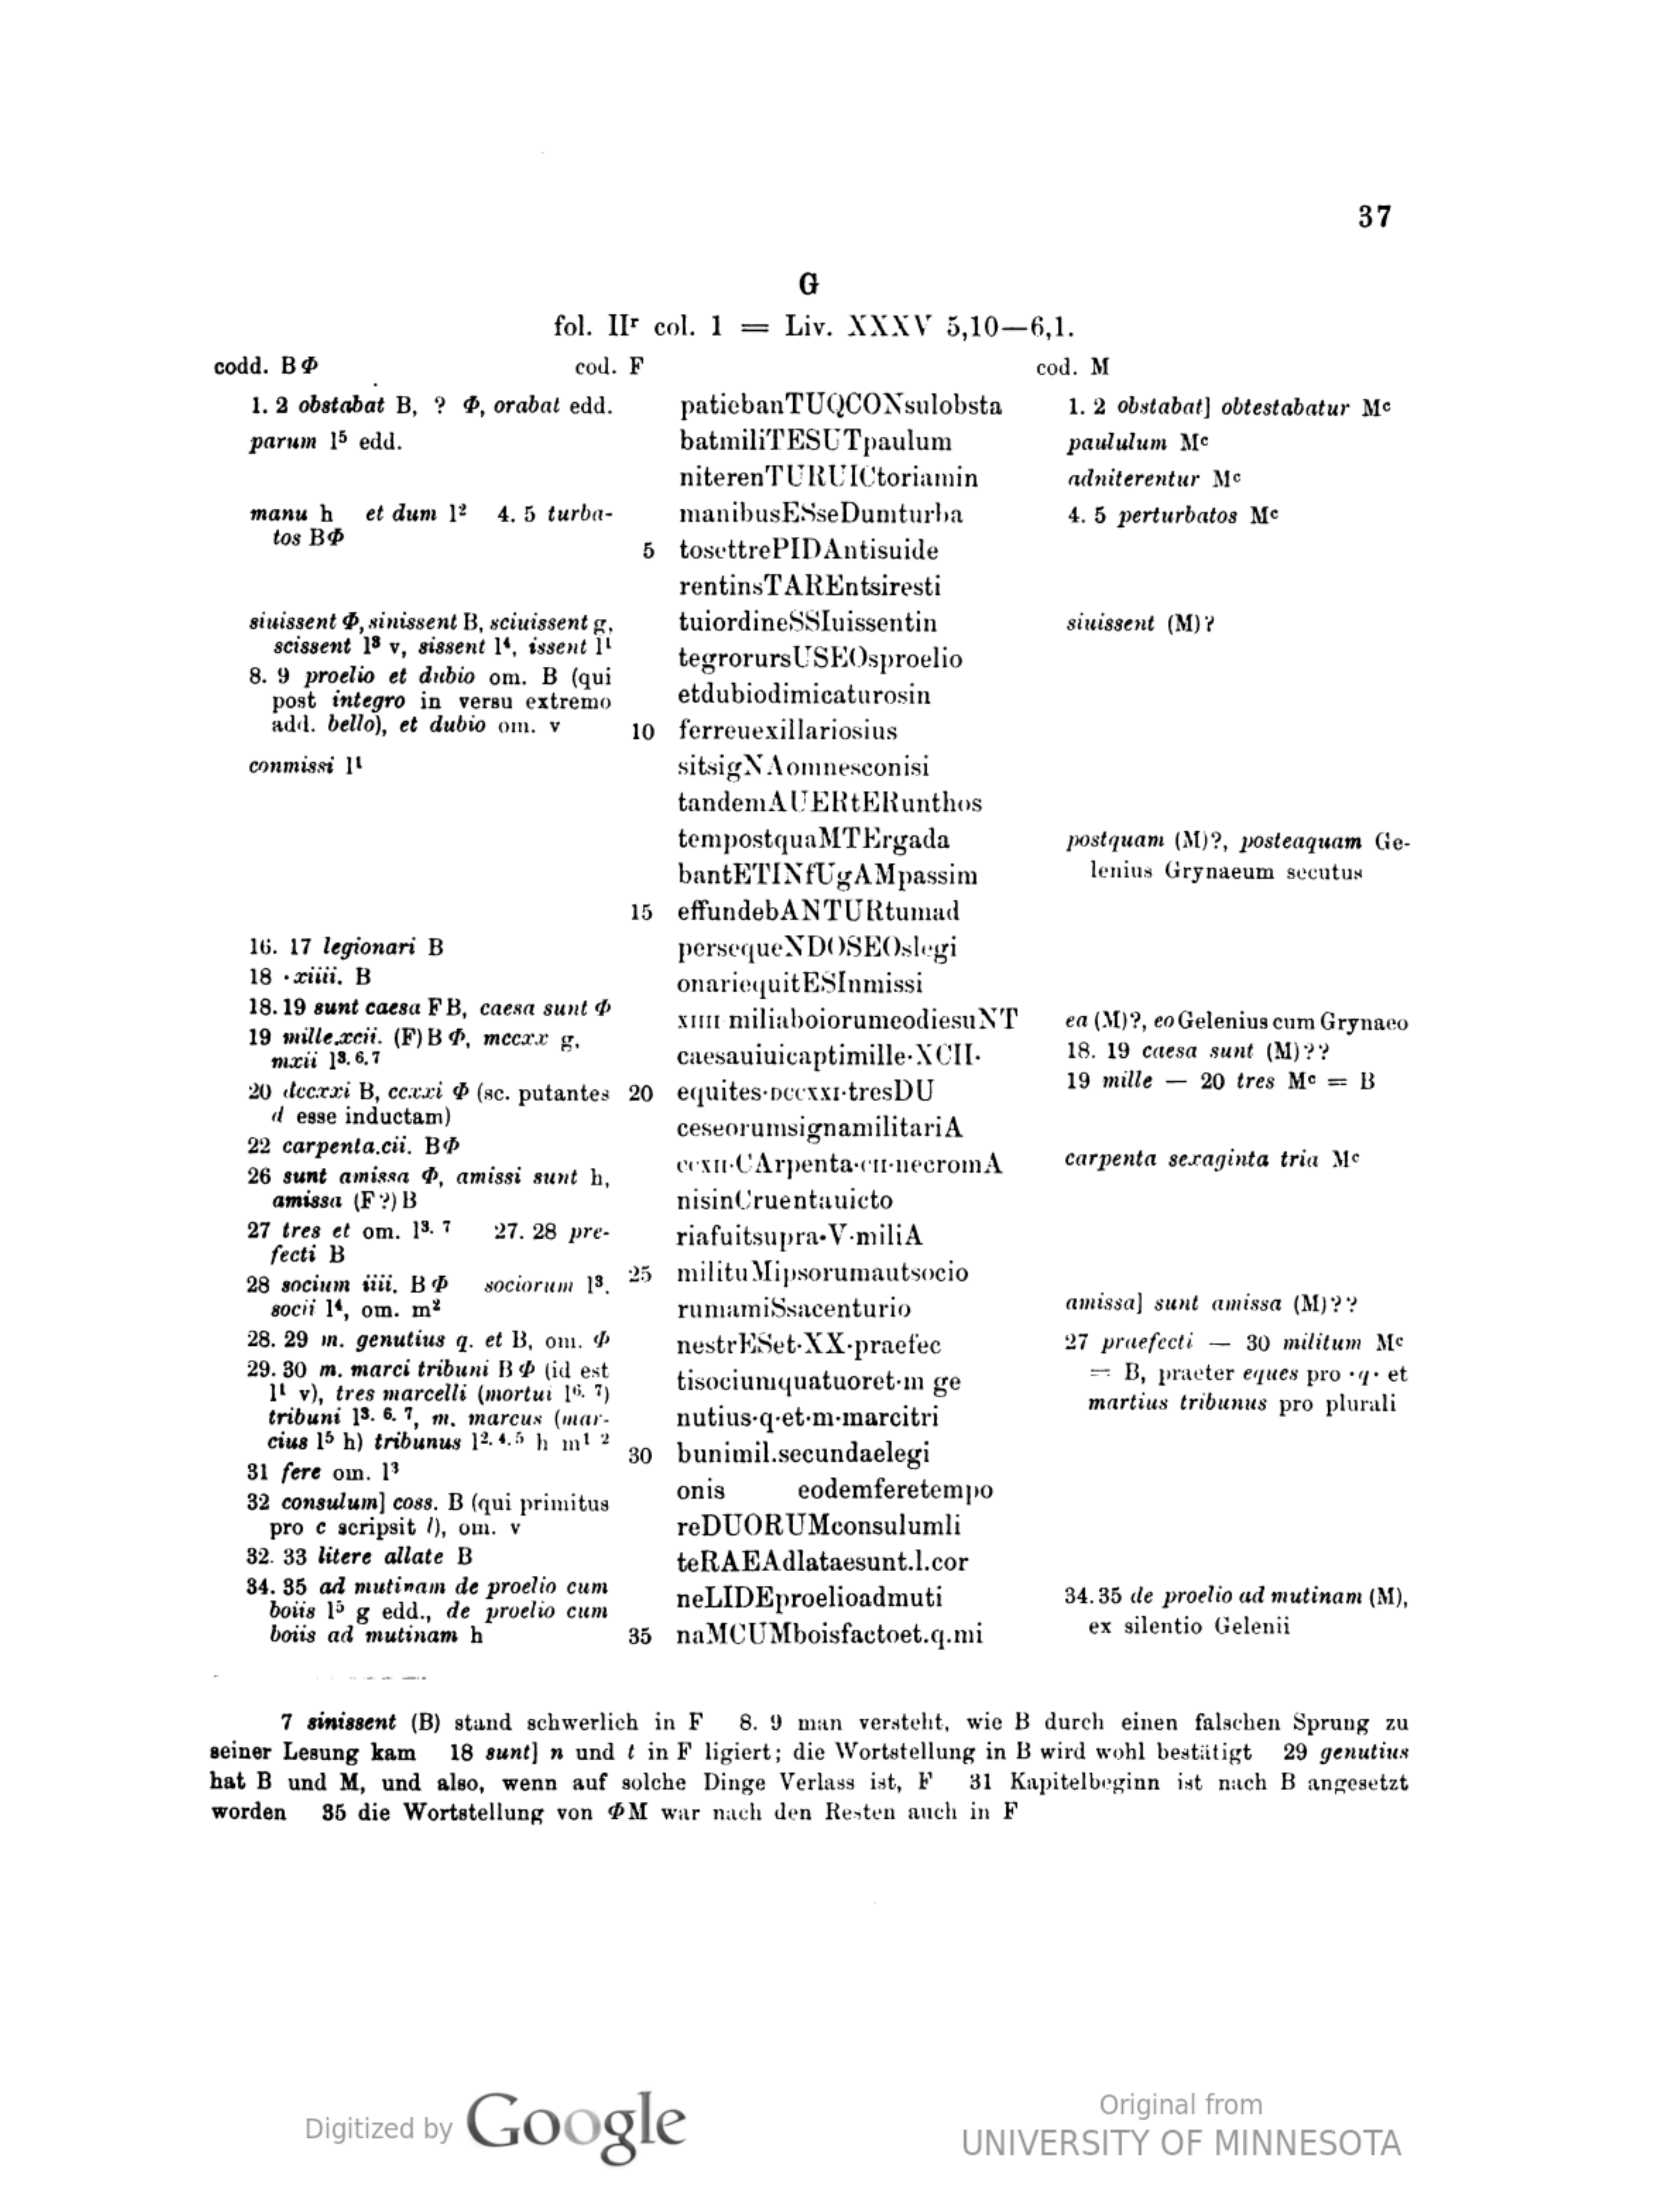 37
G
fol. IIʳ col. 1 = Liv. XXXV 5,10—6,1.
codd. BΦ
1. 2 obstabat B, ? Φ, orabat edd.
parum l⁵ edd.
manu h et dum l² 4. 5 turba-
tos BΦ
siuissent Φ, sinissent B, sciuissent g,
scissent l³ v, sissent l⁴, issent l¹
8. 9 proelio et dubio om. B (qui
post integro in versu extremo
add. bello), et dubio om. v
conmissi l¹
16. 17 legionari B
18 ·xiiii. B
18. 19 sunt caesa FB, caesa sunt Φ
19 mille.xcii. (F) B Φ, mccxx g,
mxii l³·⁶·⁷
20 dccxxi B, ccxxi Φ (sc. putantes
d esse inductam)
22 carpenta.cii. BΦ
26 sunt amissa Φ, amissi sunt h,
amissa (F?) B
27 tres et om. l³·⁷ 27. 28 pre-
fecti B
28 socium iiii. BΦ sociorum l³.
socii l⁴, om. m²
28. 29 m. genutius q. et B, om. Φ
29. 30 m. marci tribuni BΦ (id est
l¹ v), tres marcelli (mortui l⁶·⁷)
tribuni l³·⁶·⁷, m. marcus (mar-
cius l⁵ h) tribunus l²·⁴·⁵ h m¹ ²
31 fere om. l³
32 consulum] coss. B (qui primitus
pro c scripsit l), om. v
32. 33 litere allate B
34. 35 ad mutinam de proelio cum
boiis l⁵ g edd., de proelio cum
boiis ad mutinam h
cod. F
patiebanTUQCONsulobsta
batmiliTESUTpaulum
niterenTURUICtoriamin
manibusESseDumturba
5 tosettrePIDAntisuide
rentinsTAREntsiresti
tuiordineSSIuissentin
tegrorursUSEOsproelio
etdubiodimicaturosin
10 ferreuexillariosius
sitsigNAomnesconisi
tandemAUERtERunthos
tempostquaMTErgada
bantETINfUgAMpassim
15 effundebANTURtumad
persequeNDOSEOslegi
onariequitESInmissi
xiiii miliaboiorumeodiesuNT
caesauiuicaptimille·XCII·
20 equites·dccxxi·tresDU
ceseorumsignamilitariA
ccxii·CArpenta·cii·necromA
nisinCruentauicto
riafuitsupra·V·miliA
25 milituMipsorumautsocio
rumamiSsacenturio
nestrESet·XX·praefec
tisociumquatuoret·m ge
nutius·q·et·m·marcitri
30 bunimil.secundaelegi
onis eodemferetempo
reDUORUMconsulumli
teRAEAdlataesunt.l.cor
neLIDEproelioadmuti
35 naMCUMboisfactoet.q.mi
cod. M
1. 2 obstabat] obtestabatur Mᶜ
paululum Mᶜ
adniterentur Mᶜ
4. 5 perturbatos Mᶜ
siuissent (M)?
postquam (M)?, posteaquam Ge-
lenius Grynaeum secutus
ea (M)?, eo Gelenius cum Grynaeo
18. 19 caesa sunt (M)??
19 mille — 20 tres Mᶜ = B
carpenta sexaginta tria Mᶜ
amissa] sunt amissa (M)??
27 praefecti — 30 militum Mᶜ
= B, praeter eques pro ·q· et
martius tribunus pro plurali
34. 35 de proelio ad mutinam (M),
ex silentio Gelenii
7 sinissent (B) stand schwerlich in F 8. 9 man versteht, wie B durch einen falschen Sprung zu
seiner Lesung kam 18 sunt] n und t in F ligiert; die Wortstellung in B wird wohl bestätigt 29 genutius
hat B und M, und also, wenn auf solche Dinge Verlass ist, F 31 Kapitelbeginn ist nach B angesetzt
worden 35 die Wortstellung von ΦM war nach den Resten auch in F
Digitized by Google
Original from
UNIVERSITY OF MINNESOTA